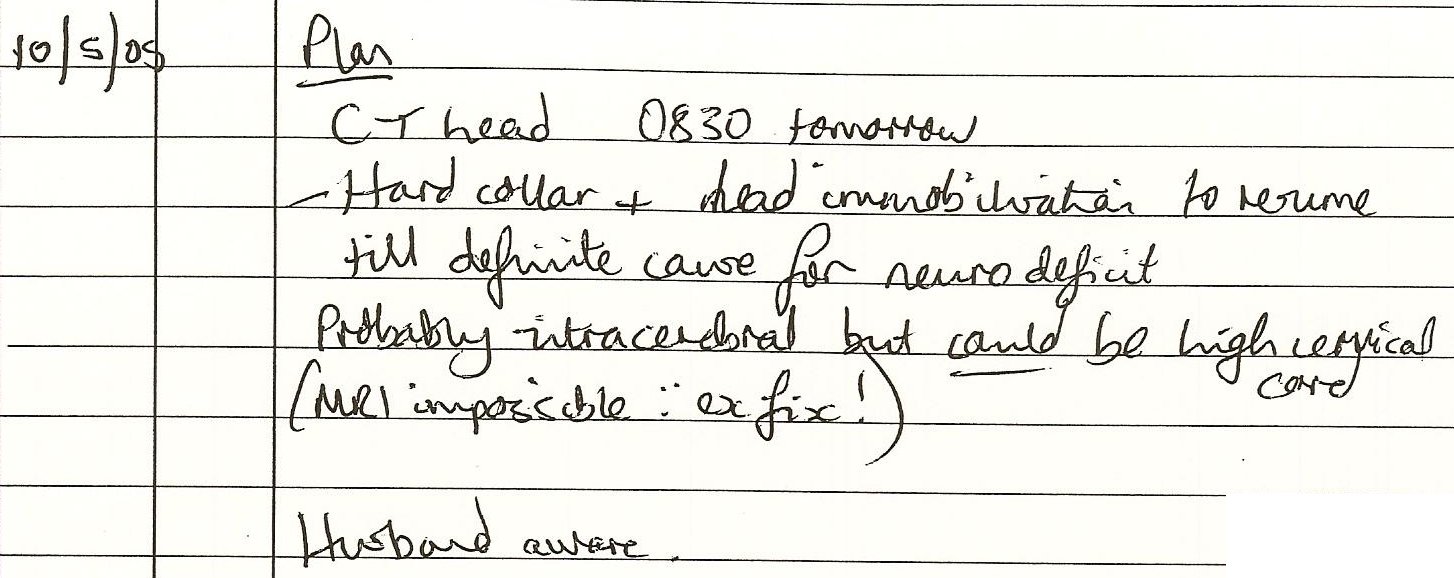 10/5/05 Plan
CT head 0830 tomorrow
- Hard collar + head immobilisation to resume
till definite cause for neuro deficit
Probably intracerebral but could be high cervical
cord
(MRI impossible ∵ ex fix!)
Husband aware.